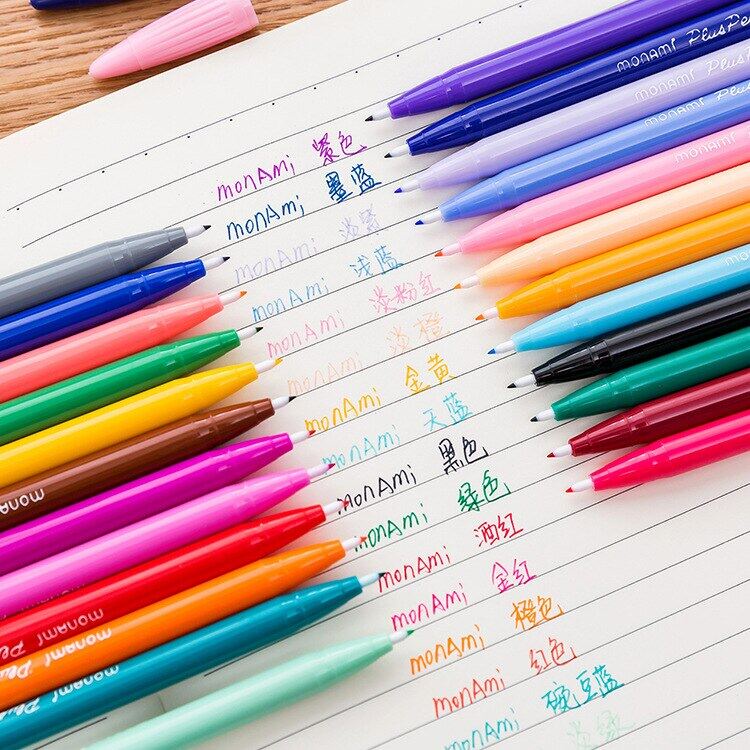 monAmi 紫色
monAmi 墨蓝
monAmi 淡紫
monAmi 浅蓝
monAmi 淡粉红
monAmi 淡橙
monAmi 金黄
monAmi 天蓝
monAmi 黑色
monAmi 绿色
monAmi 酒红
monAmi 金红
monAmi 橙色
monAmi 红色
monAmi 豌豆蓝
monAmi PlusPe
monAmi Plus
monAmi
monAmi
monAmi
monAmi Plu
monAmi